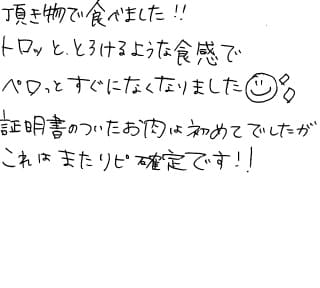 頂き物で食べました!!
トロッと、とろけるような食感で
ペロっとすぐになくなりました
証明書のついたお肉は初めてでしたが
これはまたリピ確定です!!